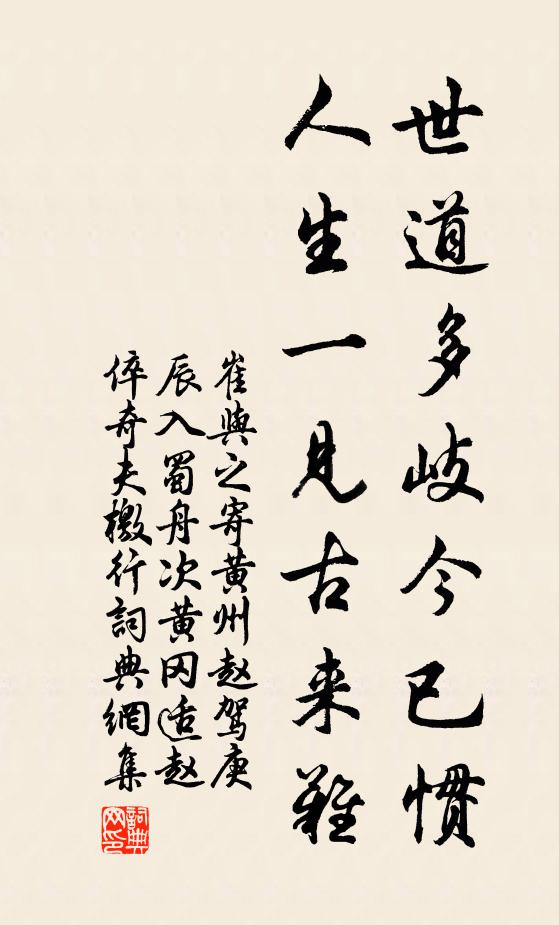 世道多岐今已惯
人生一见古来难
崔與之寄黄州赵驾庚
辰入蜀舟次黄冈适赵
倅奇夫檄行詞典網集
詞典網印